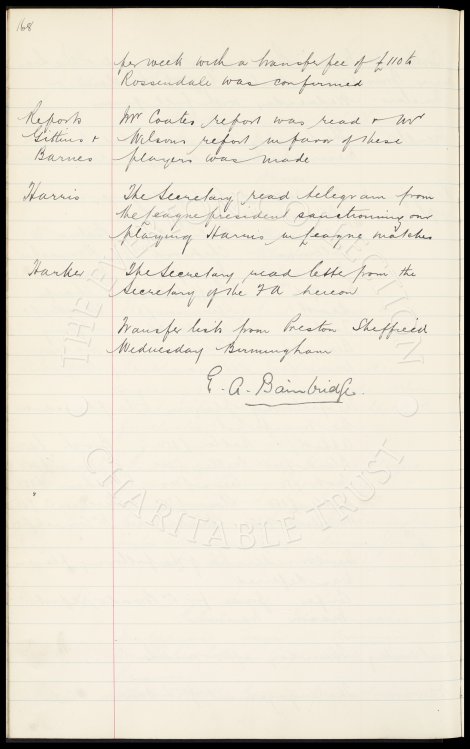 168
per week with a transfer fee of £110 to
Rossendale was confirmed
Reports Mr Coates report was read & Mr
Gittins & Wilsons report in favor of these
Barnes players was made
Harris The Secretary read telegram from
the League president sanctioning our
playing Harris in League matches
Harker The Secretary read letter from the
Secretary of the F A hereon
Transfer lists from Preston Sheffield
Wednesday Birmingham
E. A. Bainbridge.
THE EVERTON COLLECTION
CHARITABLE TRUST